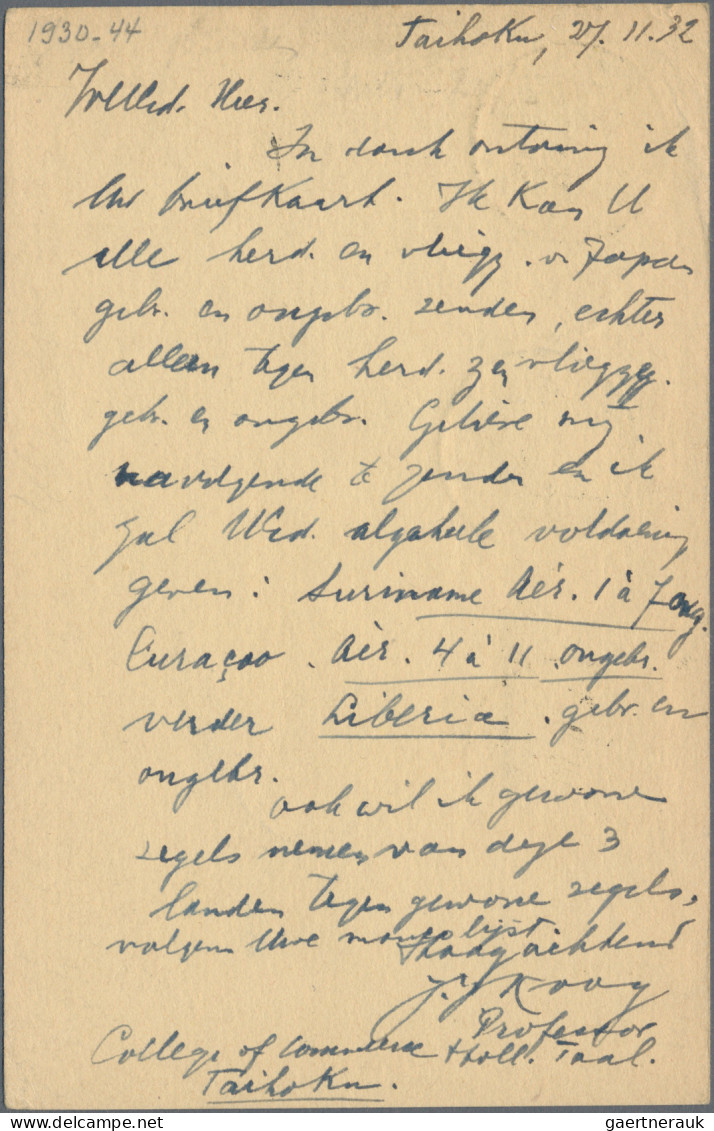 1930-44
Taihoku, 27.11.32
WelEd. Heer.
In dank ontving ik
Uw briefkaart. Ik Kan U
alle herd. en vliegz. v. Japan
gebr. en ongebr. zenden, echter
alleen tegen herd. en vliegz.
gebr. en ongebr. Gelieve mij
navolgende te zenden en ik
zal UEd. algeheele voldoening
geven: Suriname Aér. 1 à 7 ong.
Curaçao. Aér. 4 à 11 ongebr.
verder Liberia. gebr. en
ongebr.
ook wil ik gewone
zegels nemen van deze 3
landen tegen gewone zegels,
volgens Uwe lijst.
Hoogachtend
Kooy
Professor
College of Commerce Holl. Taal.
Taihoku.
© gaertnerauk / delcampe.net